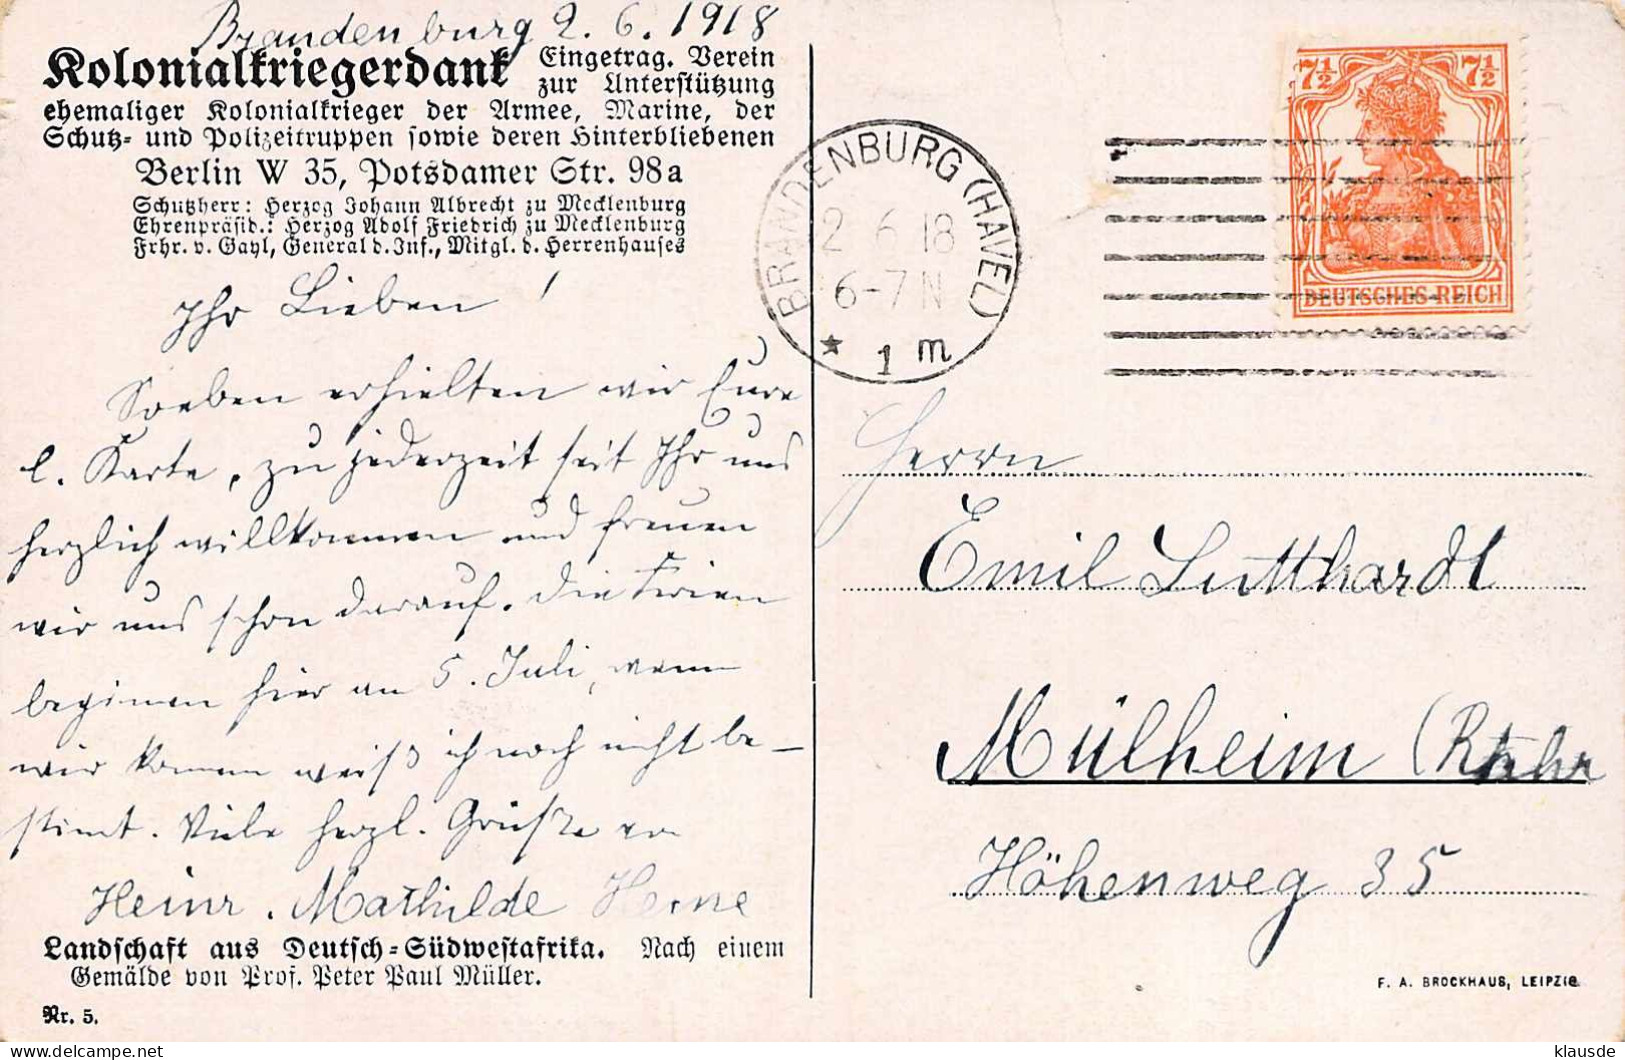 Brandenburg 2. 6. 1918
Kolonialkriegerdank Eingetrag. Verein
zur Unterstützung
ehemaliger Kolonialkrieger der Armee, Marine, der
Schutz- und Polizeitruppen sowie deren Hinterbliebenen
Berlin W 35, Potsdamer Str. 98a
Schutzherr: Herzog Johann Albrecht zu Mecklenburg
Ehrenpräsid.: Herzog Adolf Friedrich zu Mecklenburg
Frhr. v. Gayl, General d. Inf., Mitgl. d. Herrenhauses
Ihr Lieben!
Soeben erhielten wir Eure
l. Karte, zu jederzeit seit Ihr uns
herzlich willkommen und freuen
wir uns schon darauf. Die Ferien
beginnen hier am 5. Juli, wann
wir kommen weiß ich noch nicht be-
stimt. Viele herzl. Grüße von
Heinr. Mathilde
Landschaft aus Deutsch-Südwestafrika. Nach einem
Gemälde von Prof. Peter Paul Müller.
Nr. 5.
BRANDENBURG (HAVEL)
2 6 18
6-7 N
* 1 m
7½ 7½
DEUTSCHES REICH
Herrn
Emil Lutthardt
Mülheim (Ruhr
Höhenweg 35
F. A. BROCKHAUS, LEIPZIG
klausde